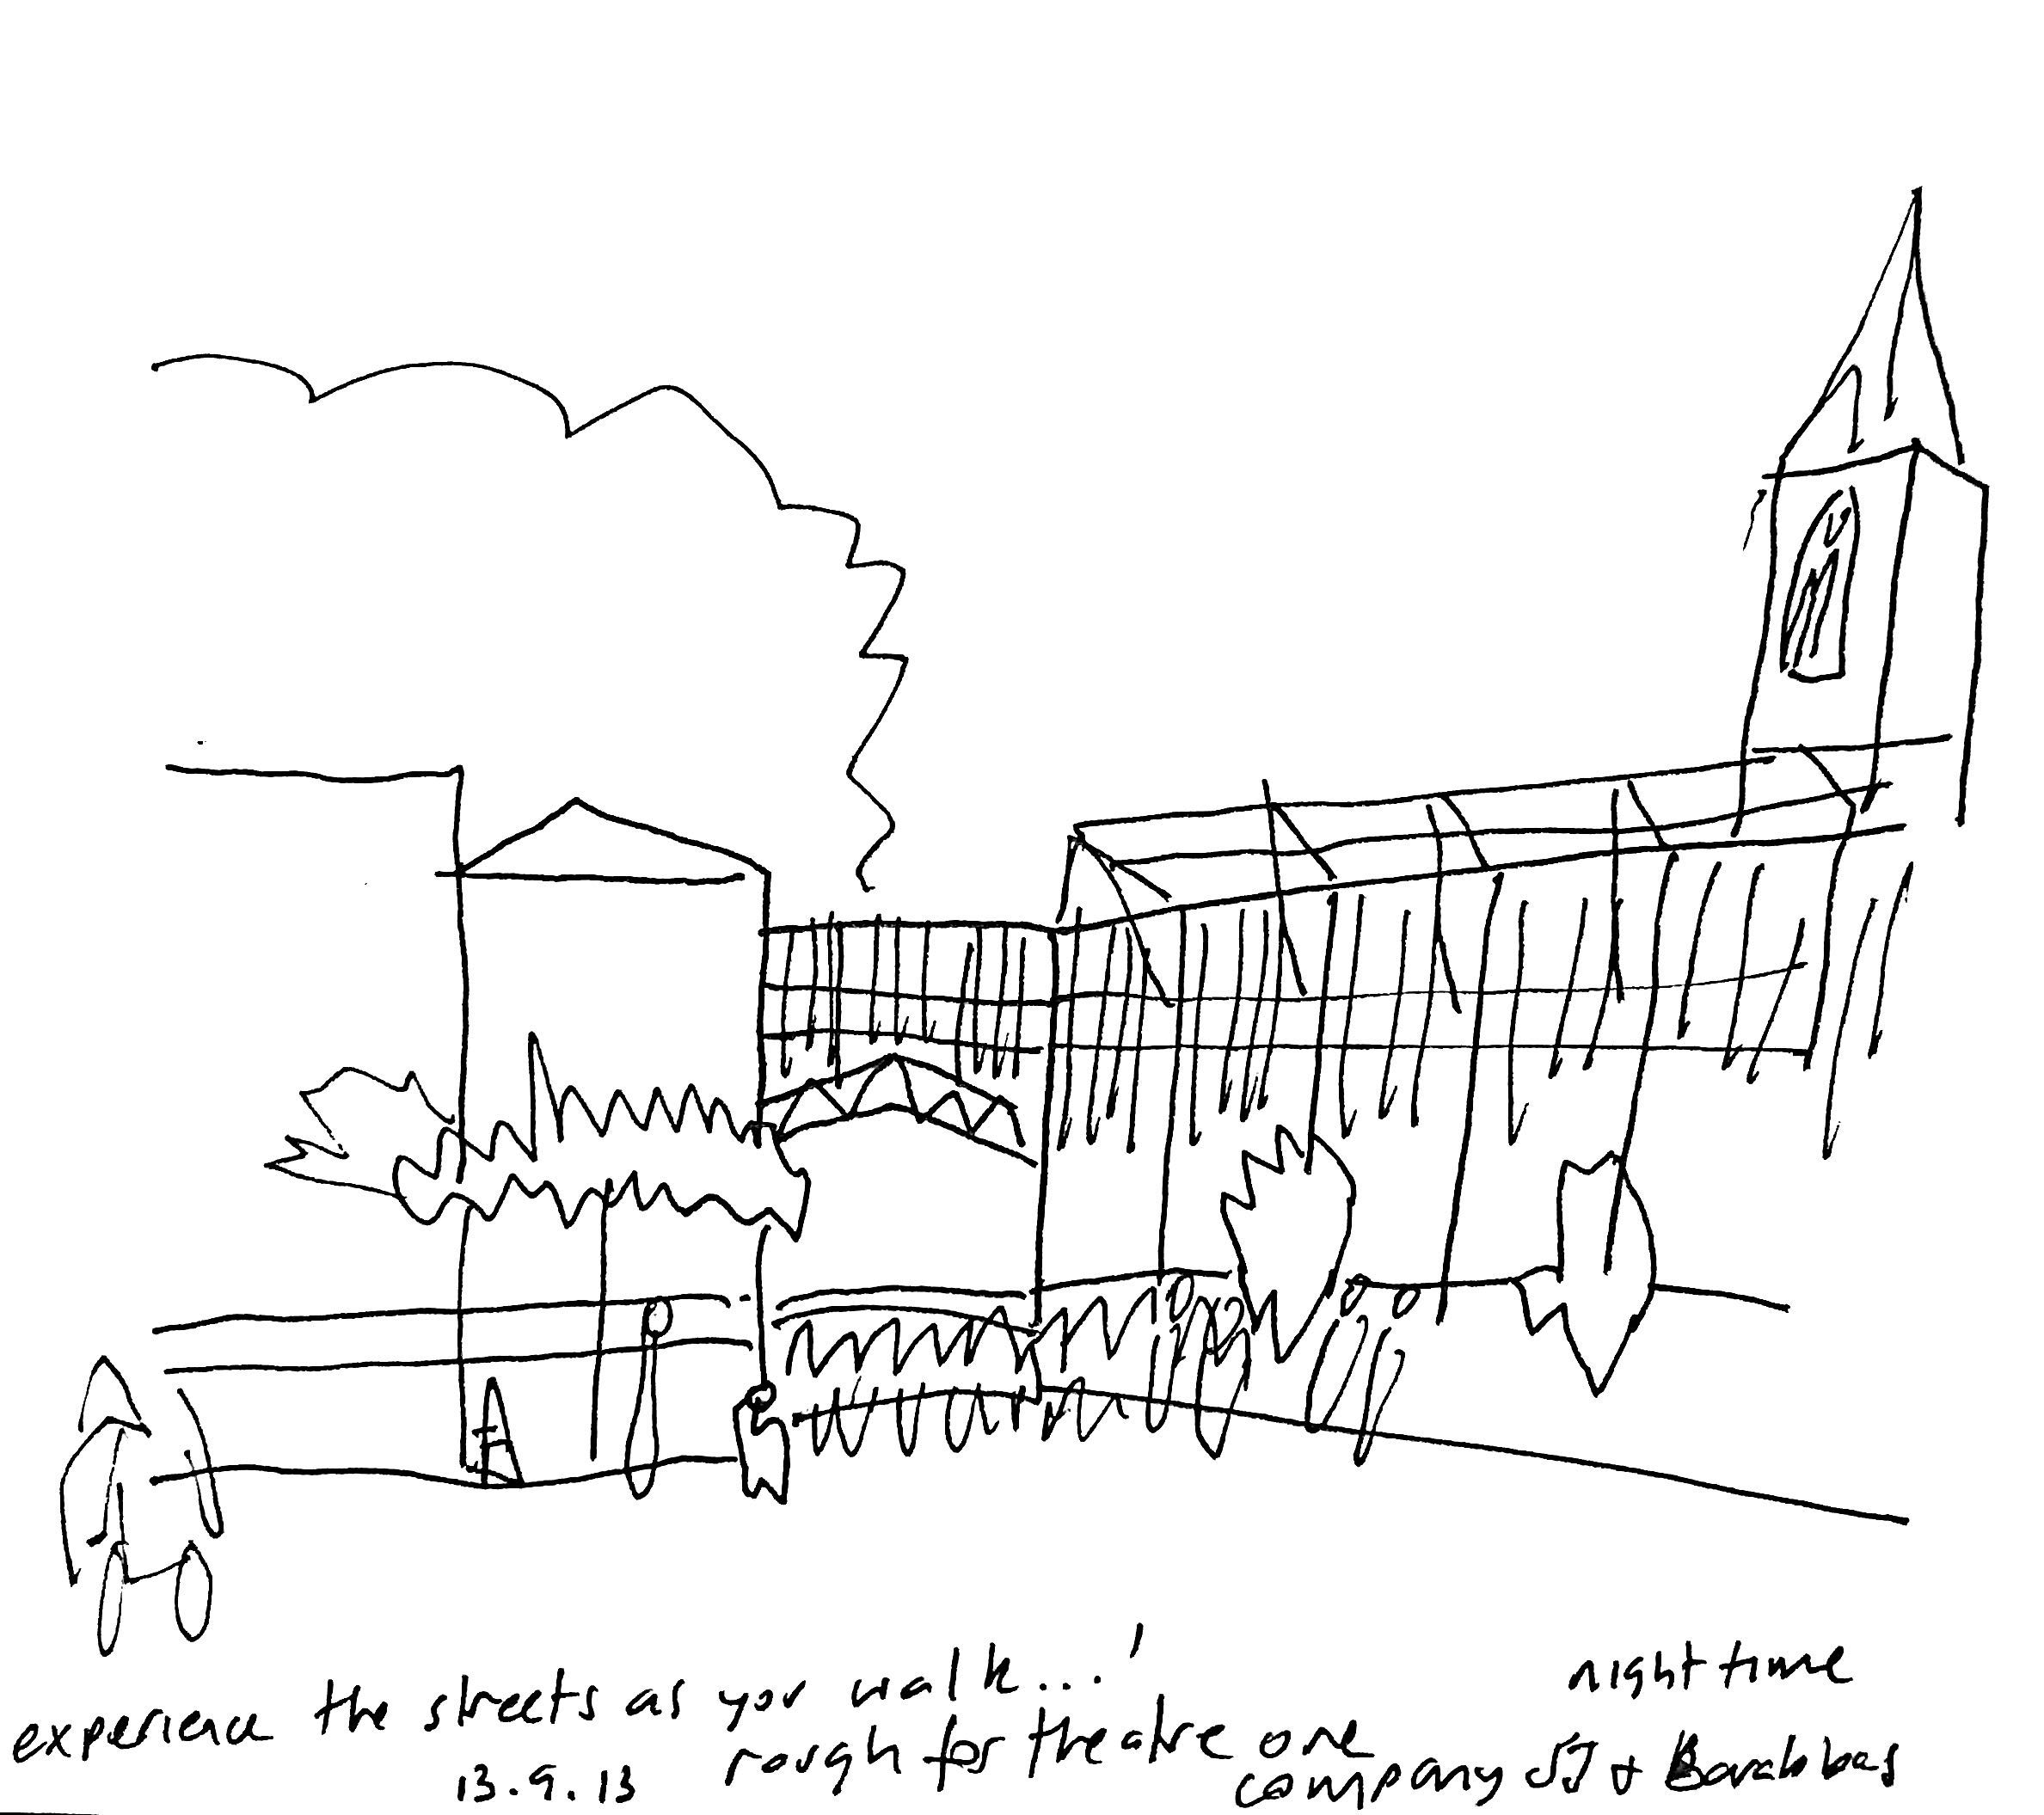 experience the streets as you walk...'
night time
13.9.13 rough for theatre one
company SJ & Barabbas